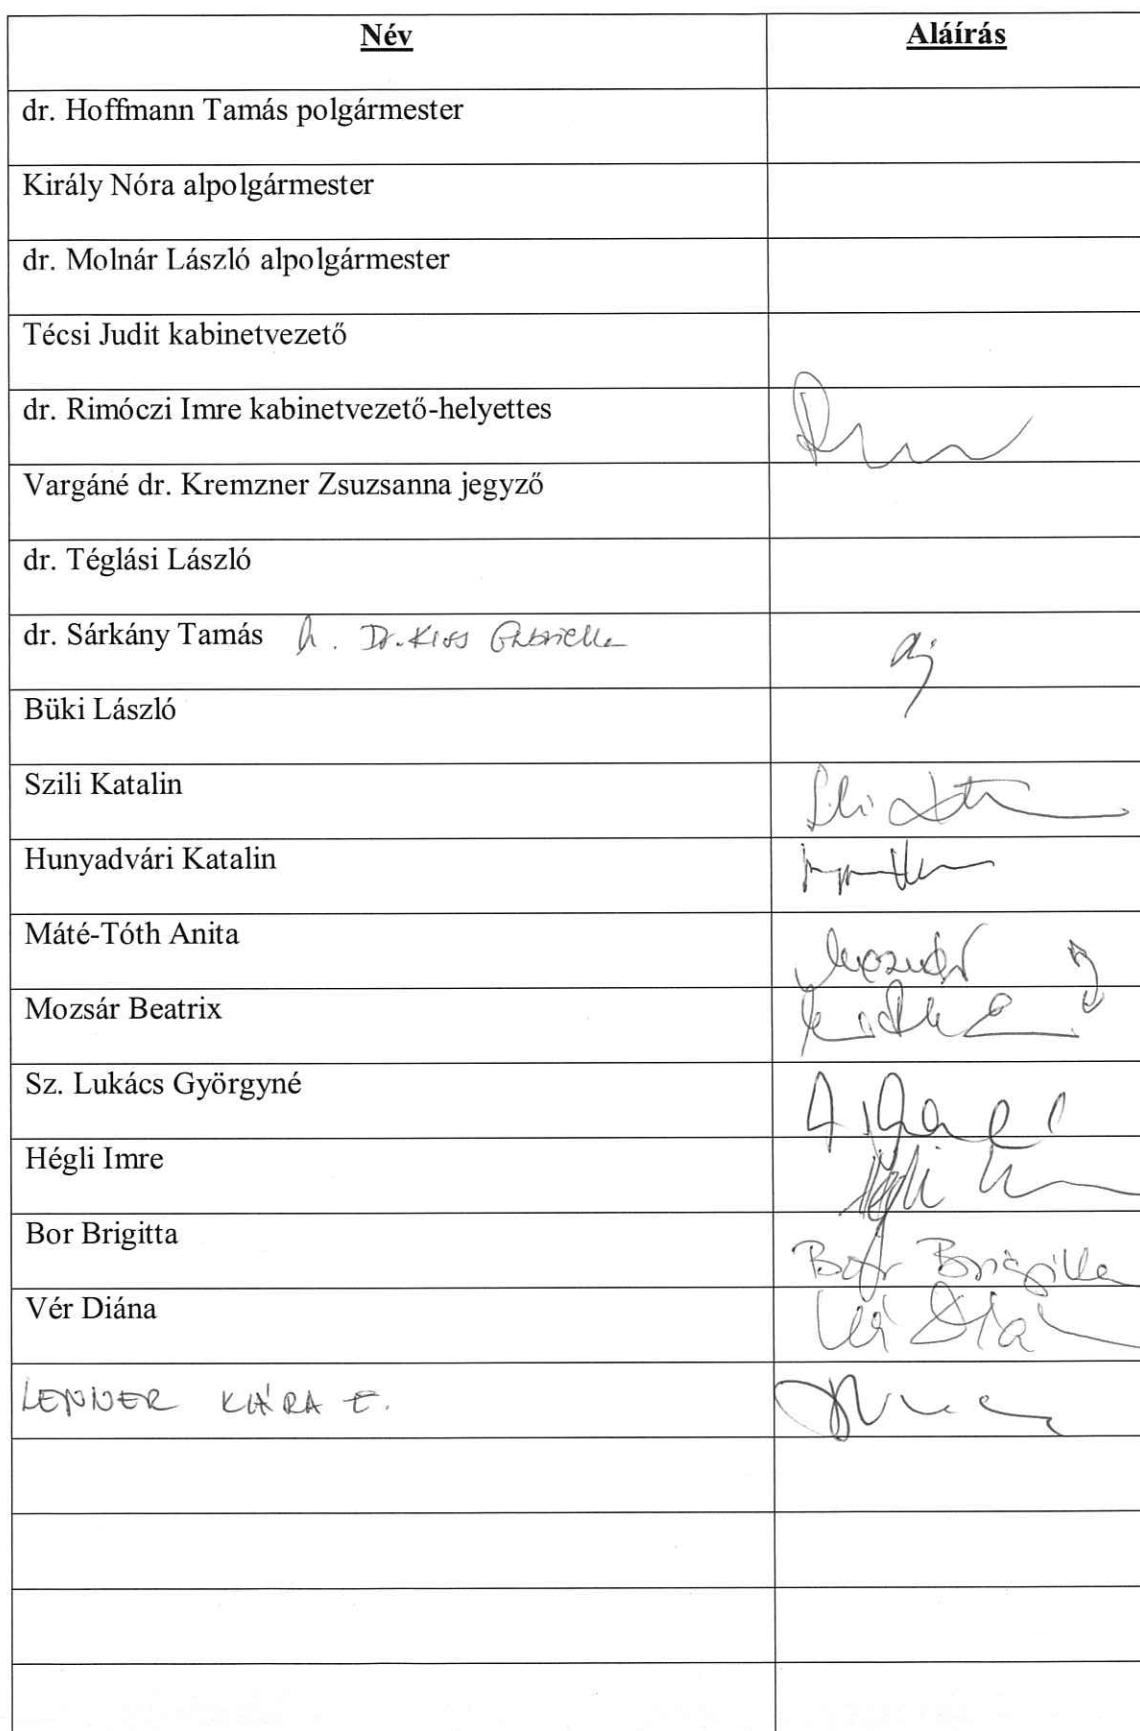 Név Aláírás
dr. Hoffmann Tamás polgármester
Király Nóra alpolgármester
dr. Molnár László alpolgármester
Técsi Judit kabinetvezető
dr. Rimóczi Imre kabinetvezető-helyettes
Vargáné dr. Kremzner Zsuzsanna jegyző
dr. Téglási László
dr. Sárkány Tamás h. Dr. Kiss Gabriella
Büki László
Szili Katalin
Hunyadvári Katalin
Máté-Tóth Anita Mozsár
Mozsár Beatrix
Sz. Lukács Györgyné
Hégli Imre
Bor Brigitta Bor Brigitta
Vér Diána Vér Diána
LENNER KLÁRA E.